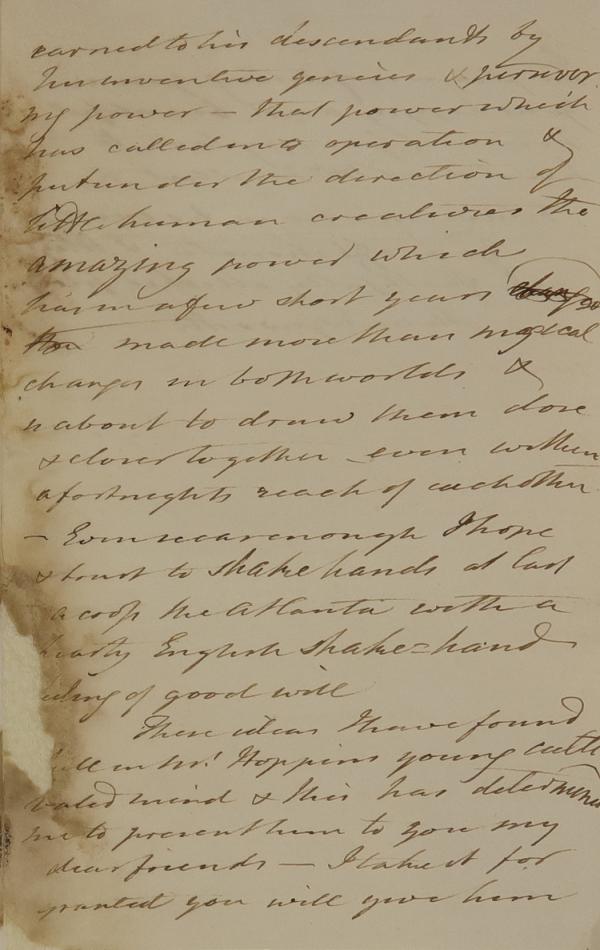 earned to his descendants by
his inventive genius & persever
ing power — that power which
has called into operation &
put under the direction of
little human creatures the
amazing power which
has in a few short years
made more than magical
changes in both worlds &
is about to draw them close
& closer together even within
a fortnights reach of each other
— Even near enough I hope
& trust to shake hands at last
acrosſ the Atlantic with a
hearty English shake=hand
of good will
These ideas I have found
in Mr. Hoppins young culti
vated mind & this has determined
me to present him to you my
dear friends — I take it for
granted you will give him